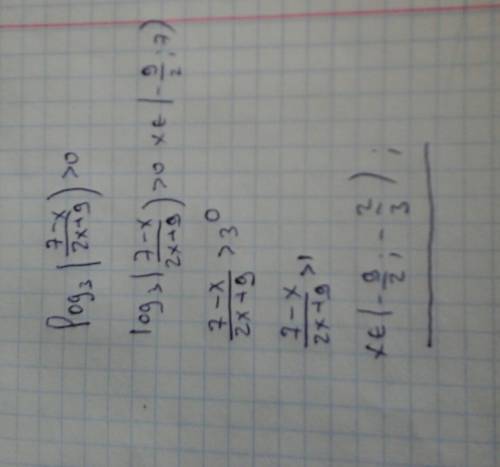 log₃(7-x/2x+9)>0
log₃(7-x/2x+9)>0 x∈(-9/2;7)
7-x/2x+9 >3⁰
7-x/2x+9 >1
x∈(-9/2;-2/3);